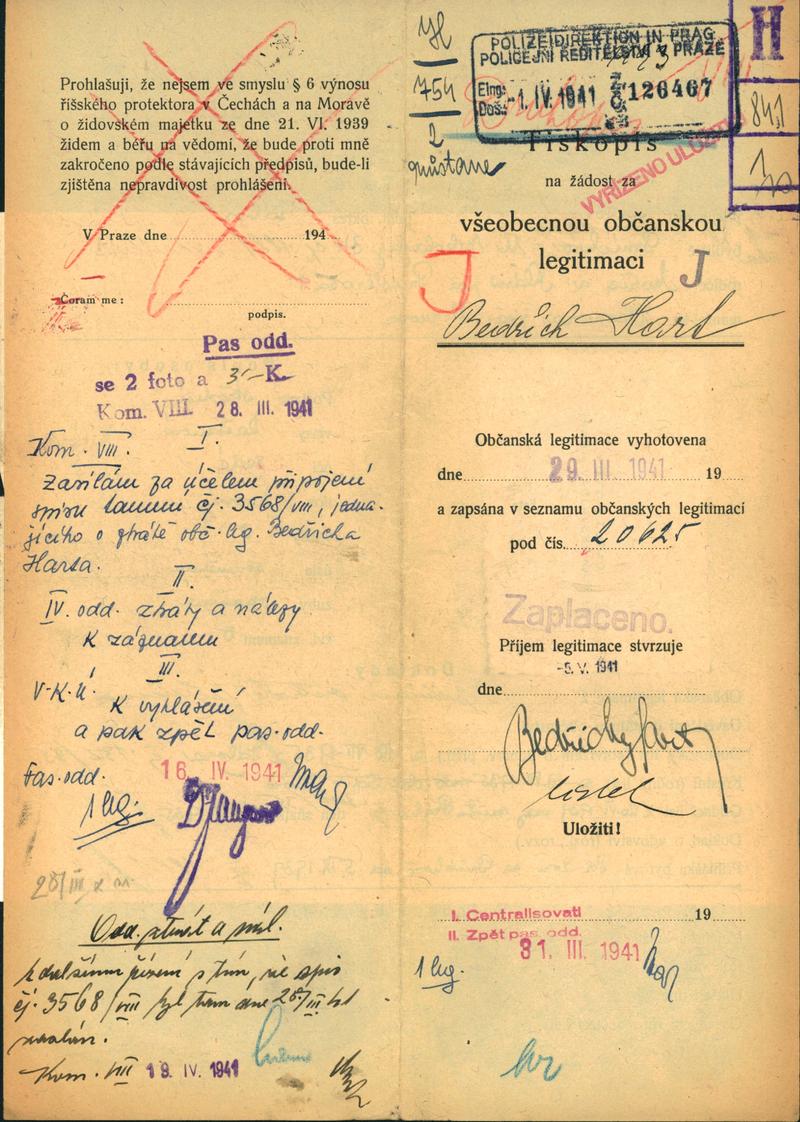 Prohlašuji, že nejsem ve smyslu § 6 výnosu
říšského protektora v Čechách a na Moravě
o židovském majetku ze dne 21. VI. 1939
židem a béřu na vědomí, že bude proti mně
zakročeno podle stávajících předpisů, bude-li
zjištěna nepravdivost prohlášení.
V Praze dne 194
Čoram me:
podpis.
Pas odd.
se 2 foto a 3 - K
Kom. VIII. 28. III. 1941
Kom. VIII. I.
Zasílám za účelem připojení
spisu tamní čj. 3568/VIII, jedna-
jícího o ztrátě obč. leg. Bedřicha
Harta.
II.
IV. odd. ztráty a nálezy
K záznamu
III.
V.K.Ú. K vyhlášení
a pak zpět pas. odd.
Pas. odd. 16. IV. 1941
1 leg.
28/III
čj. 3568/VIII
Kom. VIII 19. IV. 1941
754
2
zůstane
POLIZEIDIREKTION IN PRAG
POLICEJNÍ ŘEDITELSTVÍ V PRAZE
Eing:
Doš: -1. IV. 1941 126467
H
841
Tiskopis
VYŘÍZENO ULOŽITI
na žádost za
všeobecnou občanskou
legitimaci
J J
Bedřich Hart
Občanská legitimace vyhotovena
dne 29. III. 1941 19
a zapsána v seznamu občanských legitimací
pod čís. 20625
Zaplaceno.
Příjem legitimace stvrzuje
-5. V. 1941
dne
Bedřich Hart
Uložiti!
I. Centralisovati 19
II. Zpět pas. odd.
31. III. 1941
1 leg.